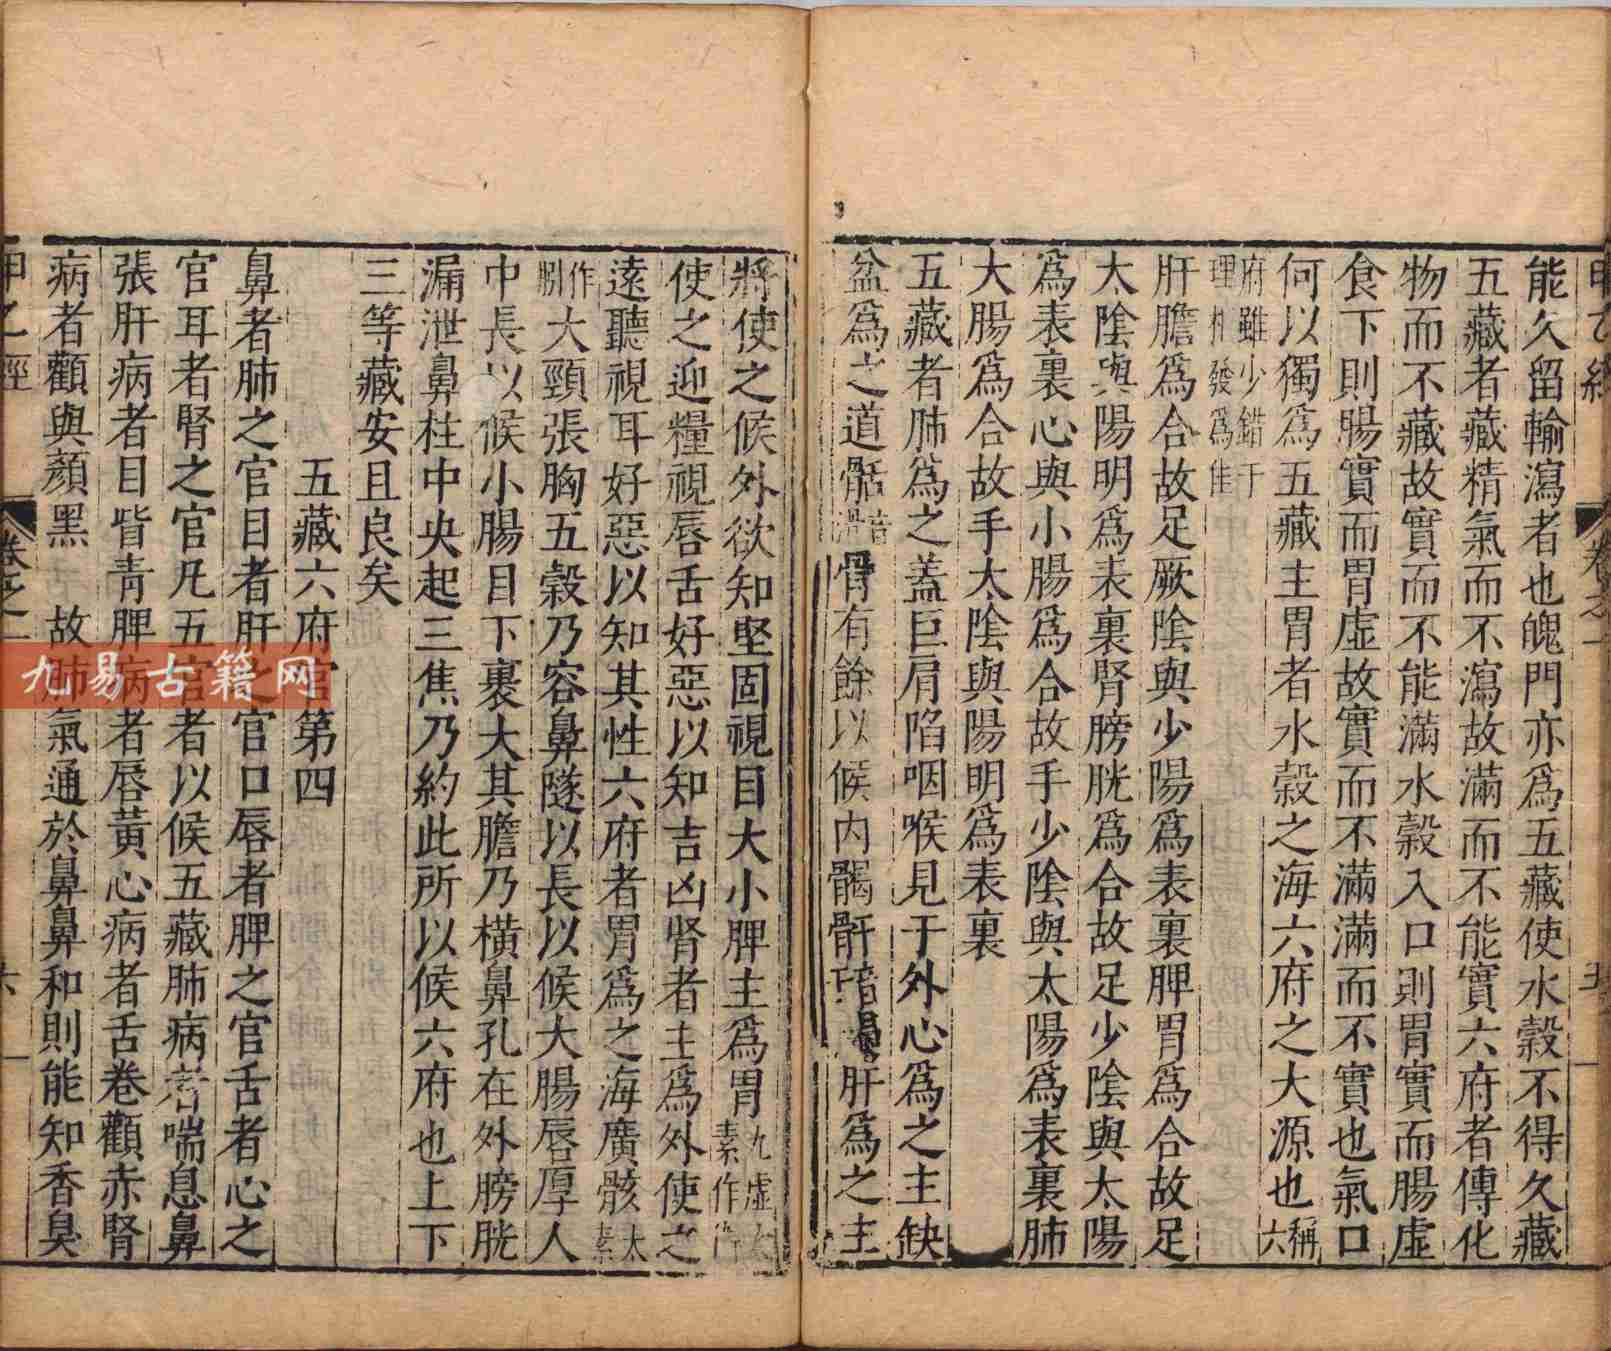 甲乙經 卷之一 五
能久留輸瀉者也魄門亦爲五藏使水穀不得久藏
五藏者藏精氣而不瀉故滿而不能實六府者傳化
物而不藏故實而不能滿水穀入口則胃實而腸虛
食下則腸實而胃虛故實而不滿滿而不實也氣口
何以獨爲五藏主胃者水穀之海六府之大源也稱六
府雖少錯于理相發爲佳
肝膽爲合故足厥陰與少陽爲表裏脾胃爲合故足
太陰與陽明爲表裏腎膀胱爲合故足少陰與太陽
爲表裏心與小腸爲合故手少陰與太陽爲表裏肺
大腸爲合故手太陰與陽明爲表裏
五藏者肺爲之蓋巨肩陷咽喉見于外心爲之主缺
盆爲之道骷音滑骨有餘以候内䯏骬音曷肝爲之主
將使之候外欲知堅固視目大小脾主爲胃九虛太素作衛
使之迎糧視唇舌好惡以知吉凶腎者主爲外使之
遠聽視耳好惡以知其性六府者胃爲之海廣骸太素
作䐃大頸張胸五穀乃容鼻隧以長以候大腸唇厚人
中長以候小腸目下裹大其膽乃橫鼻孔在外膀胱
漏泄鼻柱中央起三焦乃約此所以候六府也上下
三等藏安且良矣
五藏六府官第四
鼻者肺之官目者肝之官口唇者脾之官舌者心之
官耳者腎之官凡五官者以候五藏肺病者喘息鼻
張肝病者目眥青脾病者唇黃心病者舌卷顴赤腎
病者顴與顏黑 故肺氣通於鼻鼻和則能知香臭
甲乙經 卷之一 六
九易古籍网